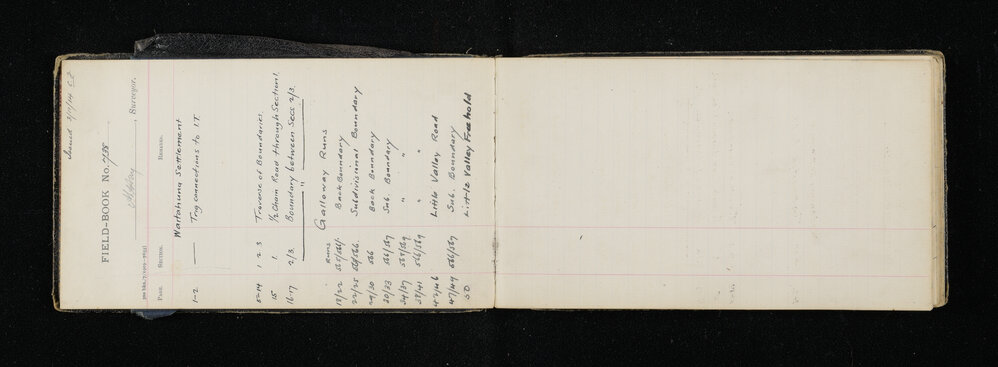 Issued 3/11/14
FIELD-BOOK No. 7/38
, Surveyor.
Page. Section. Remarks.
Waitahuna Settlement
1-2 —— Trig connections to I.T
2-14 1 2 3 Traverse of Boundaries
15 1 1/2 Chain Road through Section 1
16/17 2/3 Boundary between Secs 2/3.
"
Runs Galloway Runs
18/22 Back Boundary
22/25 Subdivisional Boundary
29/30 566 Back Boundary
30/33 566/567 Sub. Boundary
34/37 567/569 " "
38/41 566/569 " "
42/46 Little Valley Road
47/49 566/567 Sub. Boundary
50 Little Valley Freehold